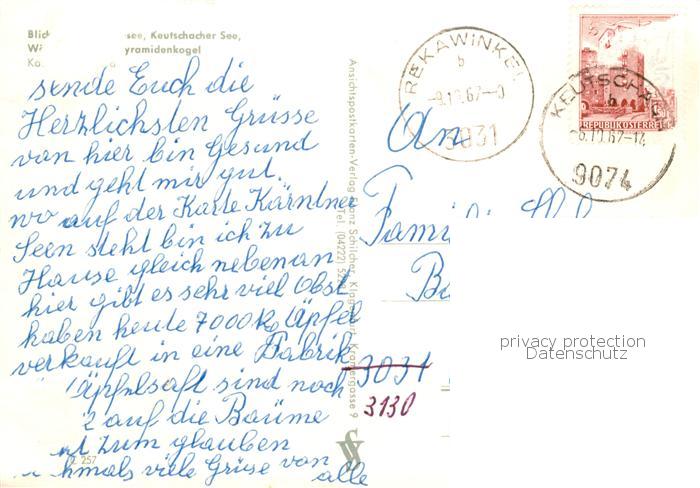 Blick see, Keutschacher See,
yramidenkogel
sende Euch die
Herzlichsten Grüsse
von hier bin Gesund
und geht mir gut.
wo auf der Karte Kärntner
Seen steht bin ich zu
Hause gleich nebenan
hier gibt es sehr viel Obst
haben heute 7000 kg Äpfel
verkauft in eine Fabrik
Äpfelsaft sind noch
auf die Bäume
zum glauben
hmals viele Grüse von
alle
257
Ansichtspostkarten-Verlag Franz Schilcher, Klagenfurt
Tel. (04222)
REKAWINKEL
b
3031
KEUTSCHACH
b
6.10.67-14
9074
REPUBLIK ÖSTERREICH
An
Fami
3031
3130
privacy protection
Datenschutz